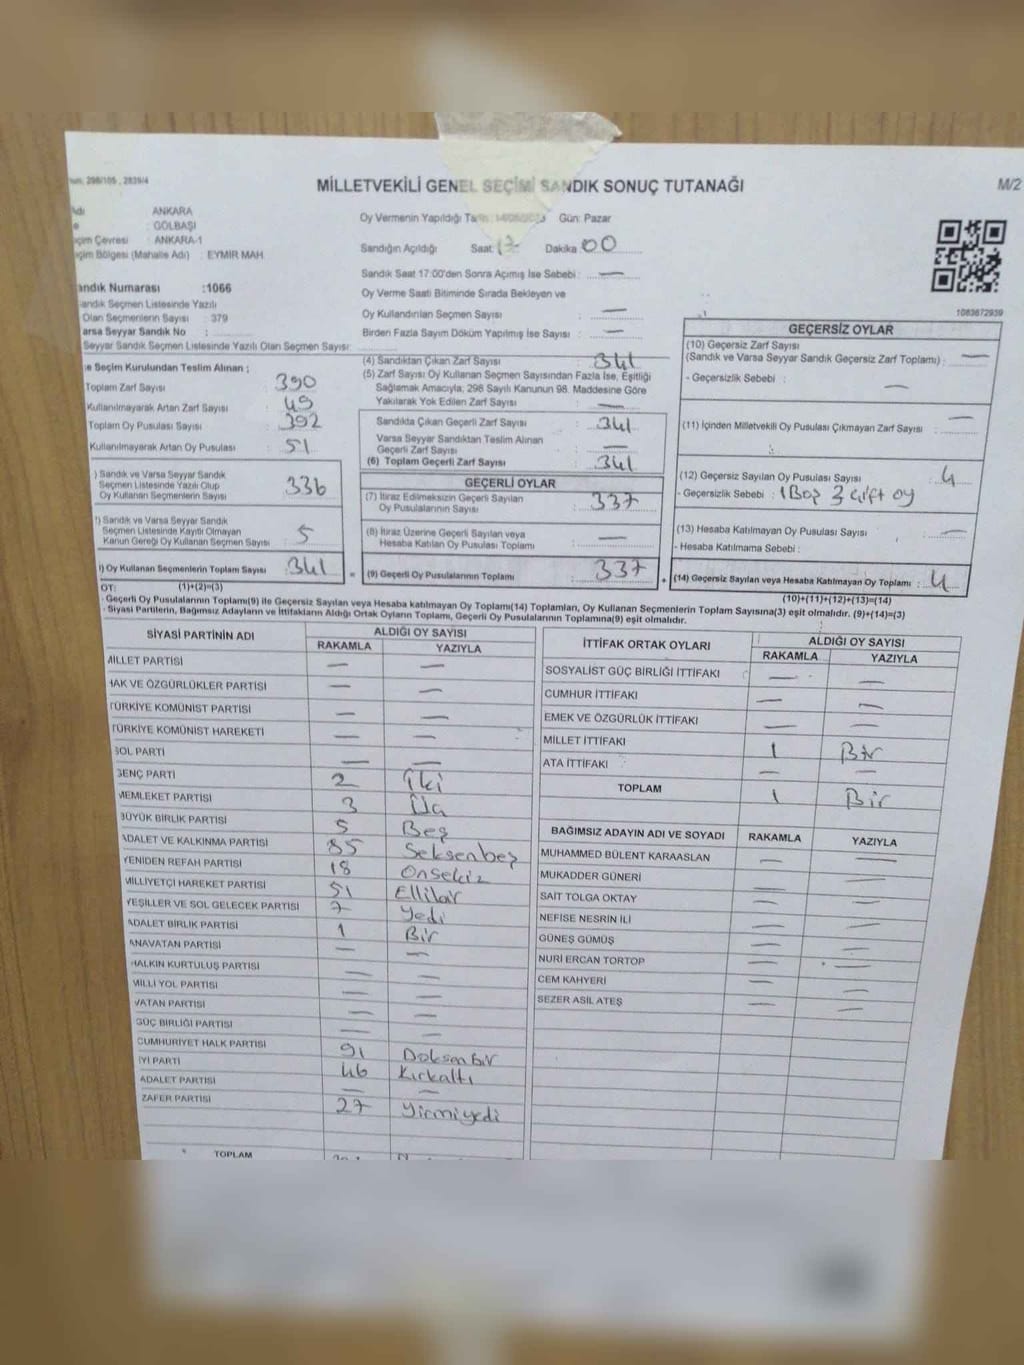 298/105 , 2839/4
MİLLETVEKİLİ GENEL SEÇİMİ SANDIK SONUÇ TUTANAĞI
M/2
ANKARA
: GÖLBAŞI
Çevresi : ANKARA-1
Bölgesi (Mahalle Adı) : EYMIR MAH.
Oy Vermenin Yapıldığı Gün: Pazar
Sandığın Açıldığı Saat: 17 Dakika 00
Sandık Saat 17:00'den Sonra Açımış İse Sebebi : —
Oy Verme Saati Bitiminde Sırada Bekleyen ve
Oy Kullandırılan Seçmen Sayısı : —
Birden Fazla Sayım Döküm Yapılmış İse Sayısı : —
1083672939
andık Numarası :1066
andık Seçmen Listesinde Yazılı
Olan Seçmenlerin Sayısı : 379
arsa Seyyar Sandık No :
Seyyar Sandık Seçmen Listesinde Yazılı Olan Seçmen Sayısı:
e Seçim Kurulundan Teslim Alınan ;
Toplam Zarf Sayısı : 390
Kullanılmayarak Artan Zarf Sayısı : 49
Toplam Oy Pusulası Sayısı : 392
Kullanılmayarak Artan Oy Pusulası : 51
) Sandık ve Varsa Seyyar Sandık
Seçmen Listesinde Yazılı Olup
Oy Kullanan Seçmenlerin Sayısı : 336
) Sandık ve Varsa Seyyar Sandık
Seçmen Listesinde Kayıtlı Olmayan
Kanun Gereği Oy Kullanan Seçmen Sayısı : 5
) Oy Kullanan Seçmenlerin Toplam Sayısı : 341
(1)+(2)=(3)
(4) Sandıktan Çıkan Zarf Sayısı : 341
(5) Zarf Sayısı Oy Kullanan Seçmen Sayısından Fazla İse, Eşitliği
Sağlamak Amacıyla, 298 Sayılı Kanunun 98. Maddesine Göre
Yakılarak Yok Edilen Zarf Sayısı : —
Sandıkta Çıkan Geçerli Zarf Sayısı : 341
Varsa Seyyar Sandıktan Teslim Alınan
Geçerli Zarf Sayısı : —
(6) Toplam Geçerli Zarf Sayısı : 341
GEÇERLİ OYLAR
(7) İtiraz Edilmeksizin Geçerli Sayılan
Oy Pusulalarının Sayısı : 337
(8) İtiraz Üzerine Geçerli Sayılan veya
Hesaba Katılan Oy Pusulası Toplamı : —
= (9) Geçerli Oy Pusulalarının Toplamı : 337
GEÇERSİZ OYLAR
(10) Geçersiz Zarf Sayısı
(Sandık ve Varsa Seyyar Sandık Geçersiz Zarf Toplamı) : —
- Geçersizlik Sebebi : —
(11) İçinden Milletvekili Oy Pusulası Çıkmayan Zarf Sayısı : —
(12) Geçersiz Sayılan Oy Pusulası Sayısı : 4
- Geçersizlik Sebebi : 1 Boş 3 çift oy
(13) Hesaba Katılmayan Oy Pusulası Sayısı : —
- Hesaba Katılmama Sebebi :
+ (14) Geçersiz Sayılan veya Hesaba Katılmayan Oy Toplamı : 4
(10)+(11)+(12)+(13)=(14)
OT:
- Geçerli Oy Pusulalarının Toplamı(9) ile Geçersiz Sayılan veya Hesaba katılmayan Oy Toplamı(14) Toplamları, Oy Kullanan Seçmenlerin Toplam Sayısına(3) eşit olmalıdır. (9)+(14)=(3)
- Siyasi Partilerin, Bağımsız Adayların ve İttifakların Aldığı Ortak Oyların Toplamı, Geçerli Oy Pusulalarının Toplamına(9) eşit olmalıdır.
SİYASİ PARTİNİN ADI ALDIĞI OY SAYISI
RAKAMLA YAZIYLA
MİLLET PARTİSİ — —
HAK VE ÖZGÜRLÜKLER PARTİSİ — —
TÜRKİYE KOMÜNİST PARTİSİ — —
TÜRKİYE KOMÜNİST HAREKETİ — —
SOL PARTİ — —
GENÇ PARTİ 2 İki
MEMLEKET PARTİSİ 3 Üç
BÜYÜK BİRLİK PARTİSİ 5 Beş
ADALET VE KALKINMA PARTİSİ 85 Seksenbeş
YENİDEN REFAH PARTİSİ 18 Onsekiz
MİLLİYETÇİ HAREKET PARTİSİ 51 Ellibir
YEŞİLLER VE SOL GELECEK PARTİSİ 7 Yedi
ADALET BİRLİK PARTİSİ 1 Bir
ANAVATAN PARTİSİ — —
HALKIN KURTULUŞ PARTİSİ — —
MİLLİ YOL PARTİSİ — —
VATAN PARTİSİ — —
GÜÇ BİRLİĞİ PARTİSİ — —
CUMHURİYET HALK PARTİSİ 91 Doksan bir
İYİ PARTİ 46 Kırkaltı
ADALET PARTİSİ — —
ZAFER PARTİSİ 27 yirmiyedi
TOPLAM
İTTİFAK ORTAK OYLARI ALDIĞI OY SAYISI
RAKAMLA YAZIYLA
SOSYALİST GÜÇ BİRLİĞİ İTTİFAKI — —
CUMHUR İTTİFAKI — —
EMEK VE ÖZGÜRLÜK İTTİFAKI — —
MİLLET İTTİFAKI 1 Bir
ATA İTTİFAKI — —
TOPLAM 1 Bir
BAĞIMSIZ ADAYIN ADI VE SOYADI RAKAMLA YAZIYLA
MUHAMMED BÜLENT KARAASLAN — —
MUKADDER GÜNERİ — —
SAİT TOLGA OKTAY — —
NEFİSE NESRİN İLİ — —
GÜNEŞ GÜMÜŞ — —
NURİ ERCAN TORTOP — —
CEM KAHYERİ — —
SEZER ASİL ATEŞ — —